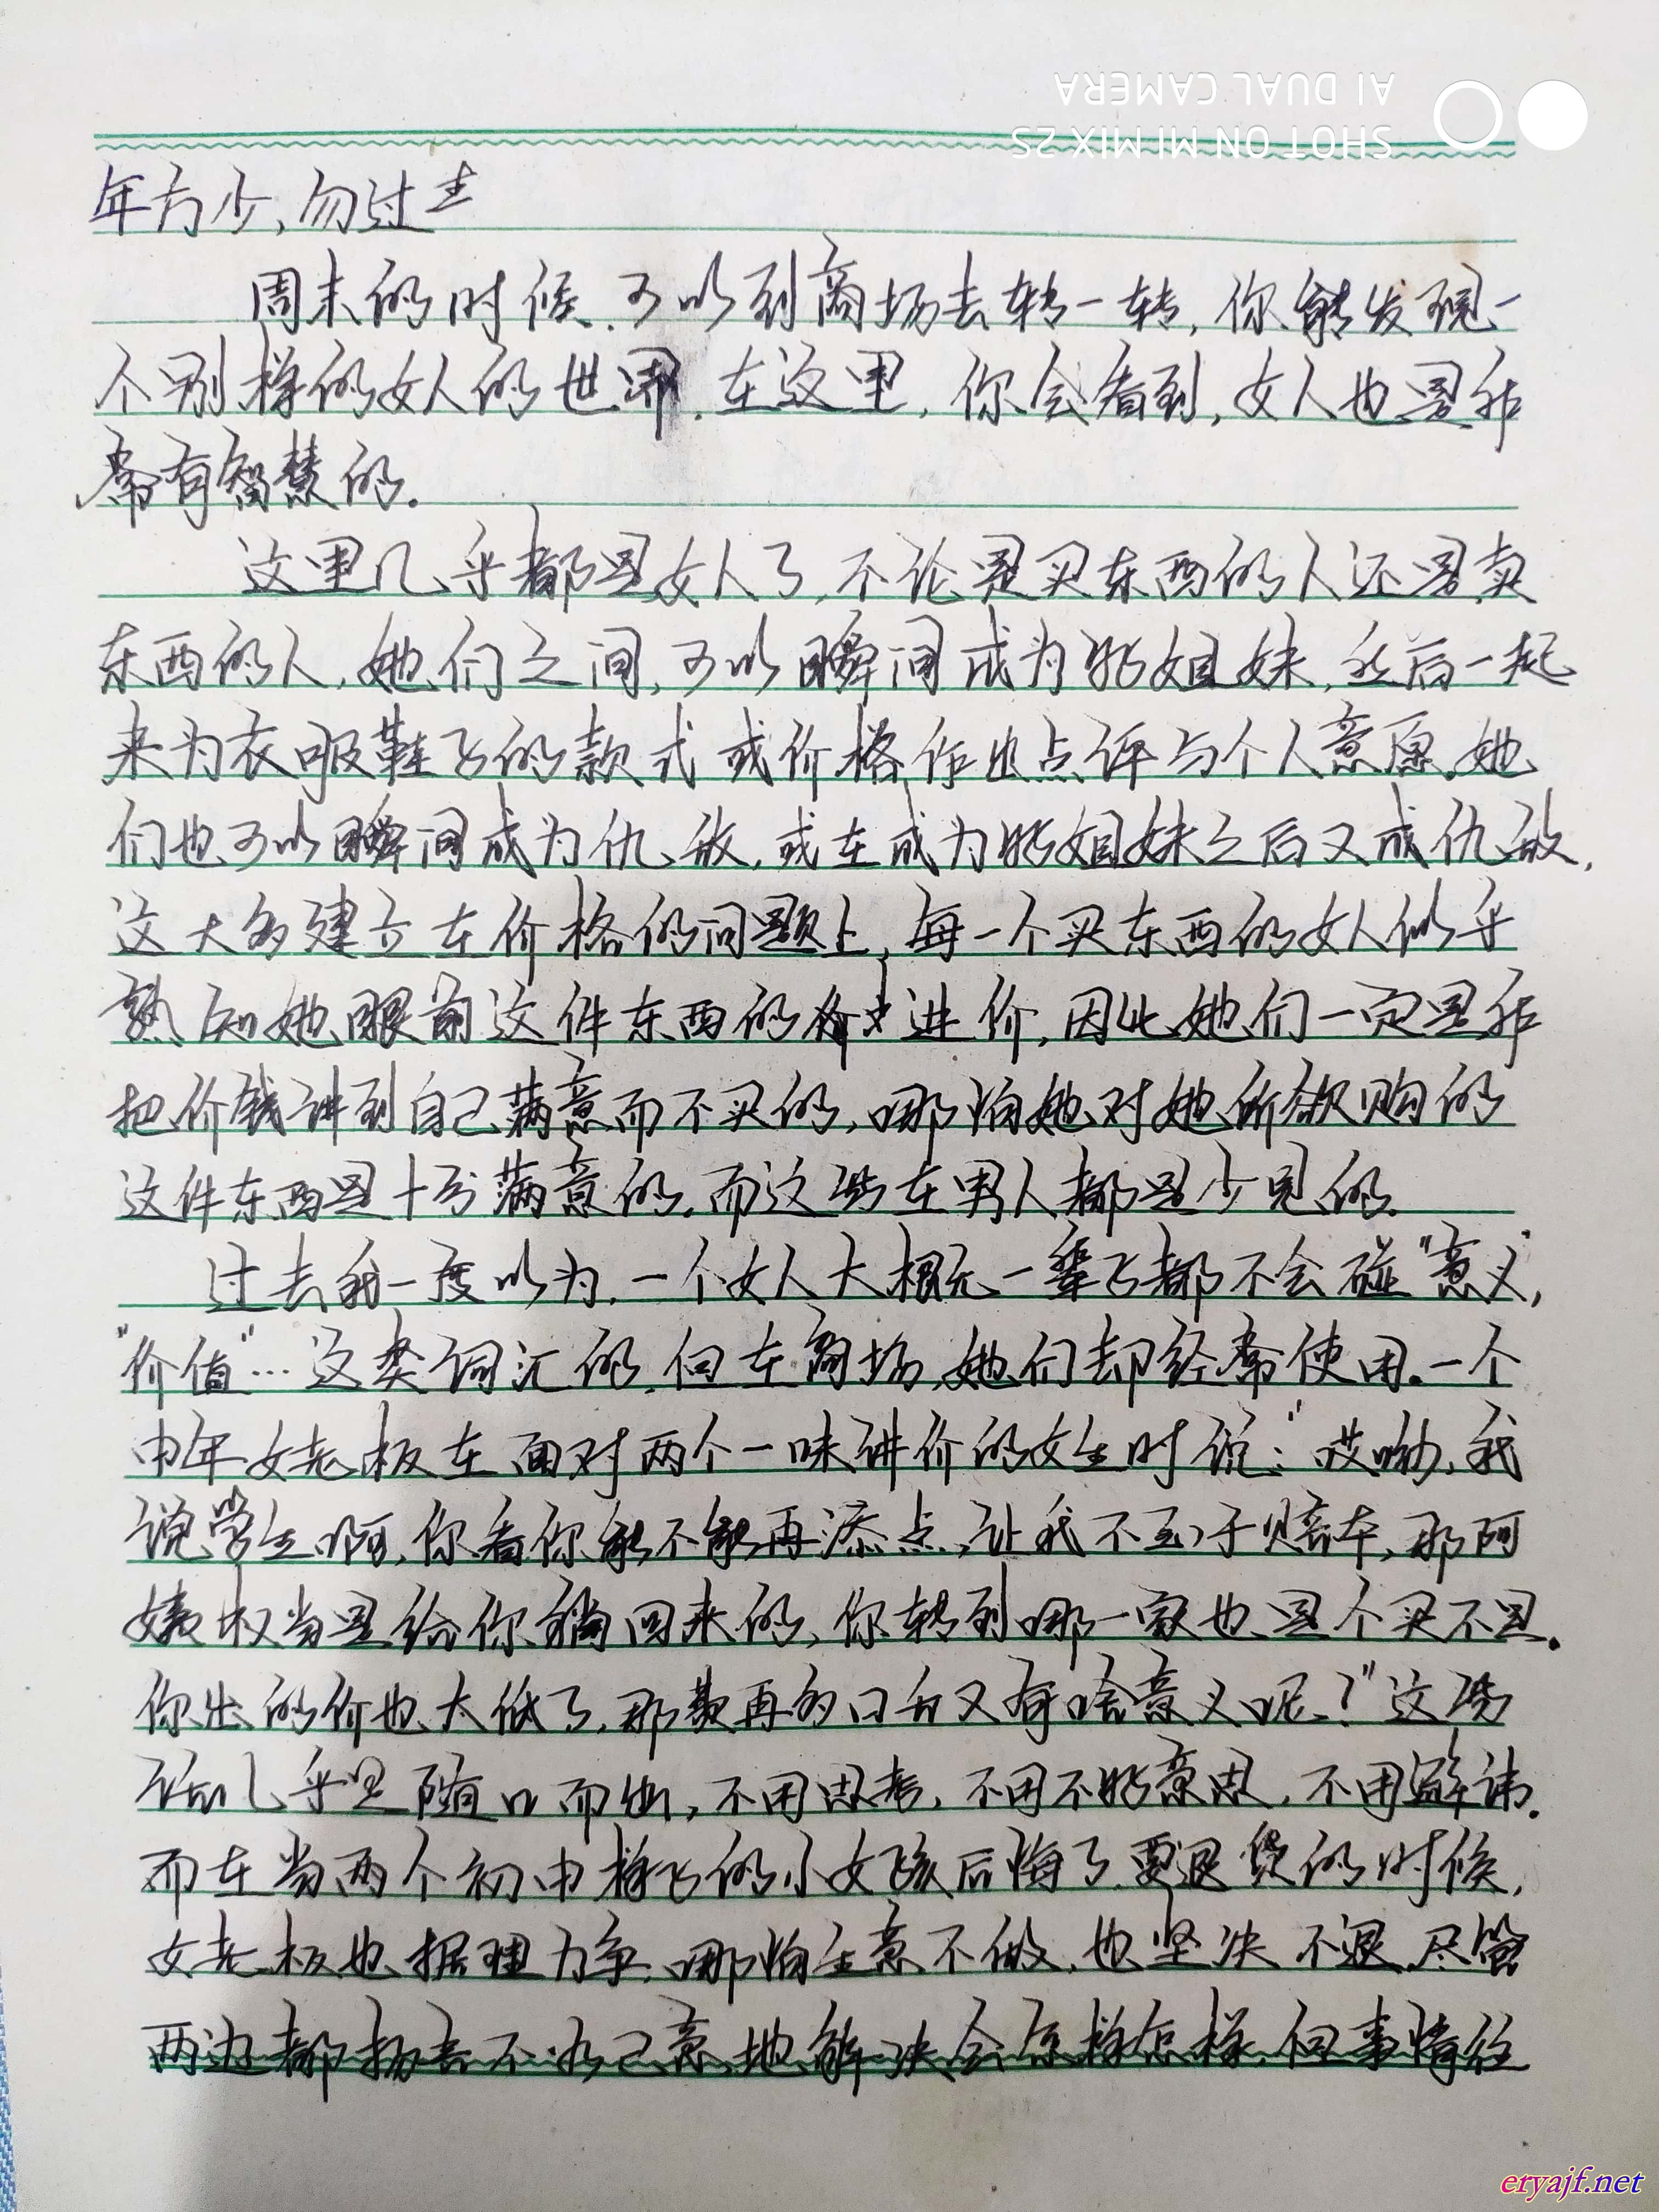 SHOT ON MI MIX 2S
AI DUAL CAMERA
年方少,勿过去
周末的时候,可以到商场去转一转,你能发现一
个别样的女人的世界,在这里,你会看到,女人也是非
常有智慧的.
这里几乎都是女人了,不论是买东西的人还是卖
东西的人,她们之间,可以瞬间成为好姐妹,然后一起
来为衣服鞋子的款式或价格作出点评与个人意愿.她
们也可以瞬间成为仇敌,或在成为好姐妹之后又成仇敌,
这大多建立在价格的问题上,每一个买东西的女人似乎
熟知她眼前这件东西的进价,因此她们一定是非
把价钱讲到自己满意而不买的,哪怕她对她所欲购的
这件东西是十分满意的.而这些在男人都是少见的.
过去我一度以为,一个女人大概一辈子都不会碰"意义",
"价值"…这类词汇的,但在商场,她们却经常使用.一个
中年女老板在面对两个一味讲价的女生时说:"哎呦,我
说学生啊,你看你能不能再添点,让我不至于赔本,那阿
姨权当是给你捎回来的,你转到哪一家也是个买不是.
你出的价也太低了,那费再多口舌又有啥意义呢?"这些
话几乎是随口而出,不用思考,不用不好意思,不用避讳.
而在当两个初中样子的小女孩后悔了要退货的时候,
女老板也据理力争,哪怕生意不做,也坚决不退,尽管
两边都扬言不如己意地解决会怎样怎样,但事情往
eryajf.net